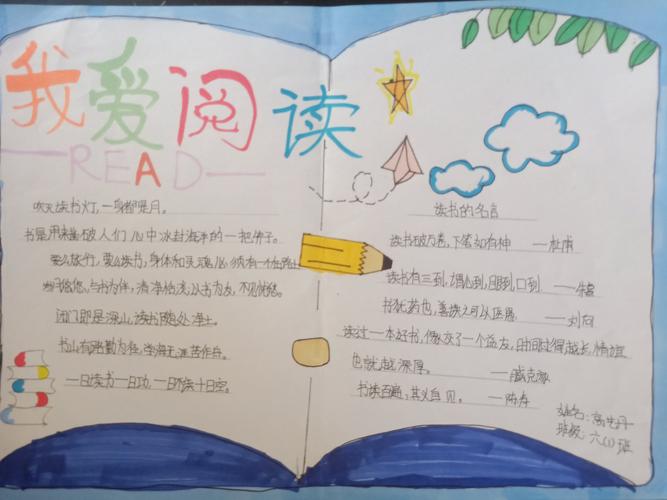 我爱阅读
READ
吹灭读书灯,一身都是月。
书是用来破人们心中冰封海洋的一把斧子。
要么旅行,要么读书,身体和灵魂必须有一个在路上
与书为伴,清净恬淡,以书为友,不见忧愁。
闭门即是深山 读书随处净土。
书山有路勤为径,学海无涯苦作舟。
一日读书一日功,一日不读十日空。
读书的名言
读书破万卷,下笔如有神 ——杜甫
读书有三到,谓心到,眼到,口到 ——朱熹
书犹药也,善读之可以医愚 ——刘向
读过一本好书,像交了一个益友,时间过得越长,情谊
也就越深厚。 ——臧克家
书读百遍,其义自见。 ——陈寿
姓名:高
班级:六(1)班